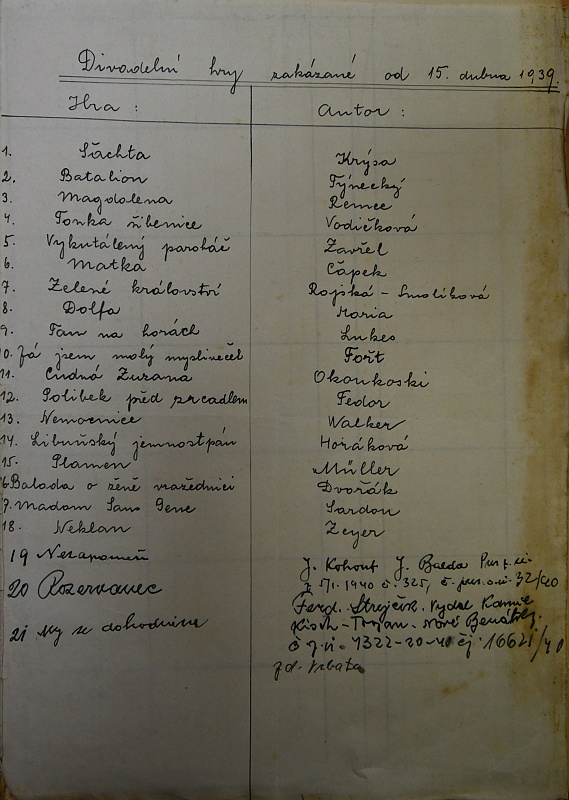 Divadelní hry zakázané od 15. dubna 1939.
Hra : Autor :
1. Šachta Krysa
2. Batalion Týnecký
3. Magdalena Remec
4. Tonka šibenice Vodičková
5. Vykutálený paroháč Zavřel
6. Matka Čapek
7. Zelené království Rojská - Smolíková
8. Dolfa Maria
9. Tam na horách Lukeš
10. Já jsem malý mysliveček Fořt
11. Cudná Zuzana Okonkoski
12. Polibek před zrcadlem Fedor
13. Nemocnice Walker
14. Libuňský jemnostpán Horáková
15. Plamen Müller
16. Balada o ženě vražednici Dvořák
17. Madam Sans Gene Sardou
18. Neklan Zeyer
19 Nezapomeň J. Kohout J. Balda
z 5/1. 1940 č. 325, 32/20
20 Rozervanec Ferd. Strejček. vydal Kamil
- Trojan - Nové Benátky.
21 My se dohodneme 1322-20-40 čj. 16621/40
zd. Vrbata